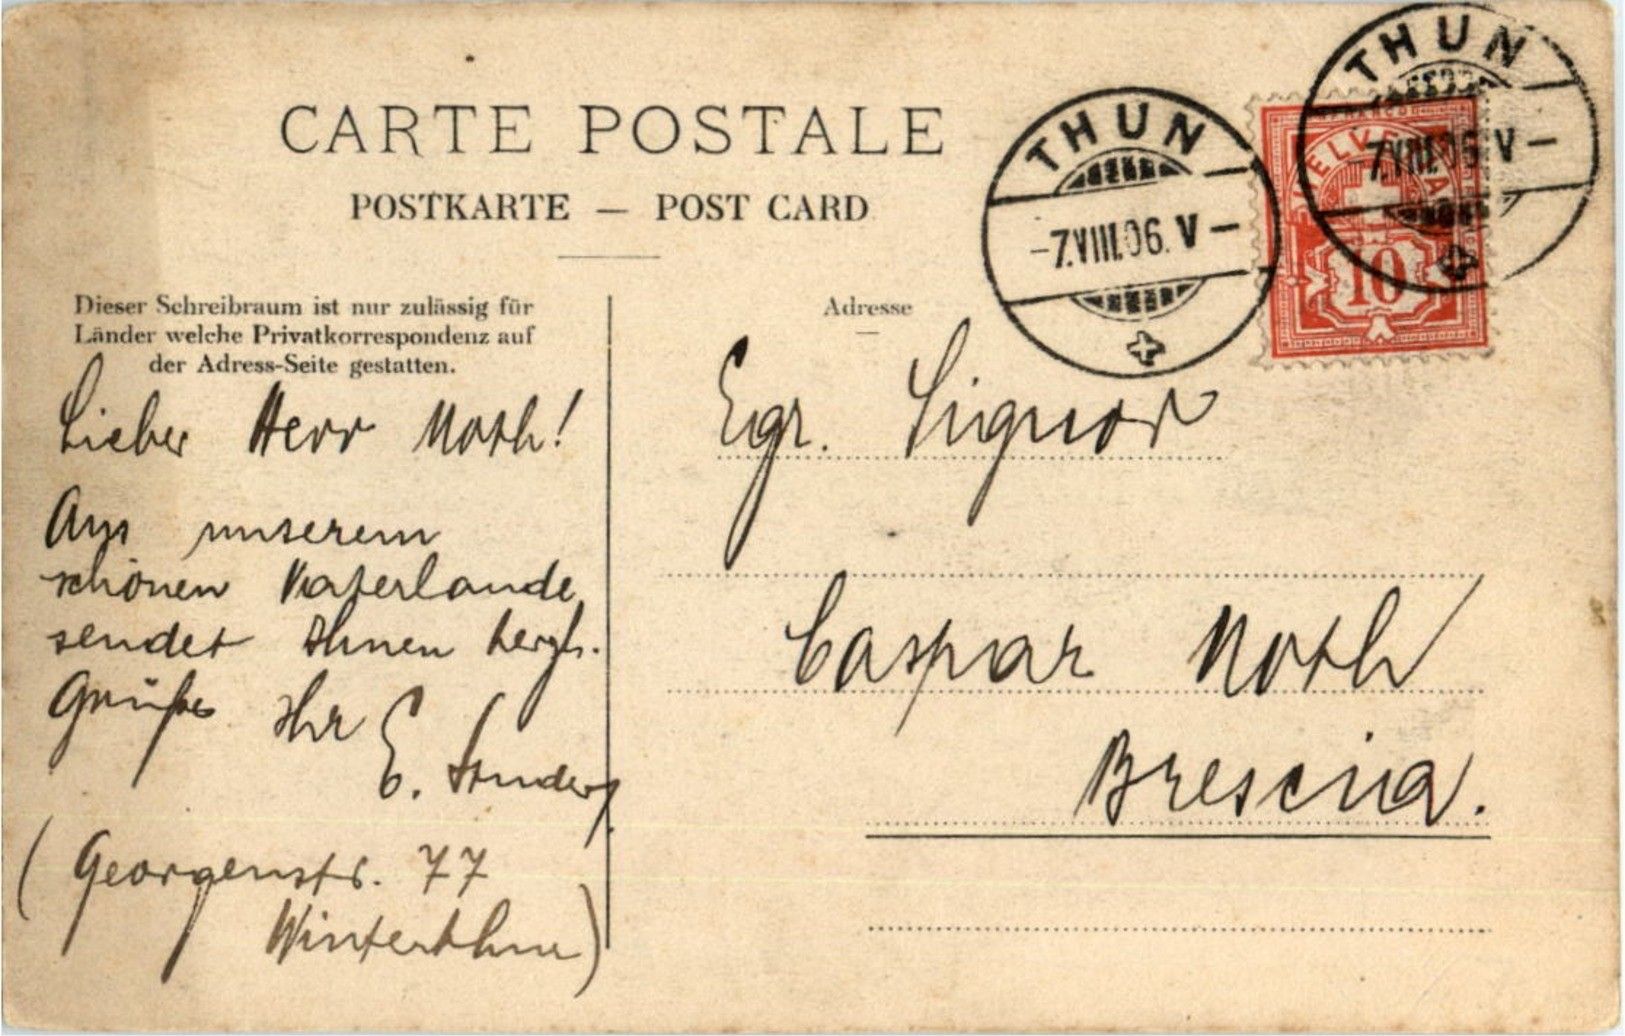 CARTE POSTALE
POSTKARTE — POST CARD
THUN
-7.VIII.06.V-
THUN
-7.VIII.06.V-
FRANCO
HELVETIA
10
Dieser Schreibraum ist nur zulässig für
Länder welche Privatkorrespondenz auf
der Adress-Seite gestatten.
Lieber Herr Noth!
Aus unserem
schönen Vaterlande
sendet Ihnen herzl.
Grüße Ihr E. Studer
(Georgenstr. 77
Winterthur)
Adresse
Egr. Signor
Caspar Noth
Brescia.